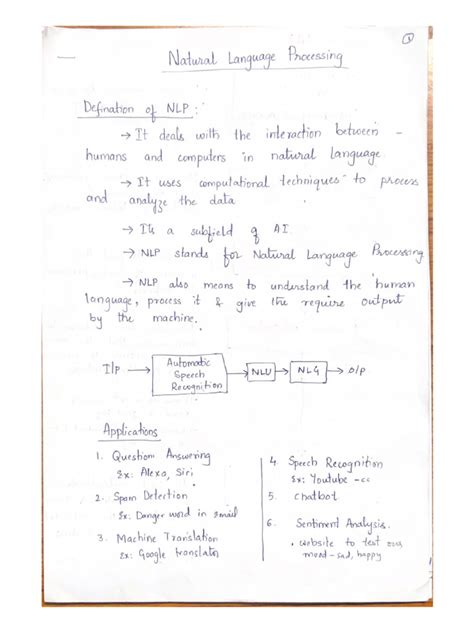 1
Natural Language Processing
Defination of NLP :
→ It deals with the interaction between -
humans and computers in natural language
→ It uses computational techniques to process
and analyze the data
→ It's a subfield of AI.
→ NLP stands for Natural Language Processing
→ NLP also means to understand the human
language, process it & give the require output
by the machine.
I/P → Automatic Speech Recognition → NLU → NLG → O/P
Applications
1. Question Answering
Ex: Alexa, Siri
2. Spam Detection
Ex: Danger word in email
3. Machine Translation
Ex: Google translator
4. Speech Recognition
Ex: Youtube - cc
5. chatbot
6. Sentiment Analysis.
. website to test our
mood - sad, happy